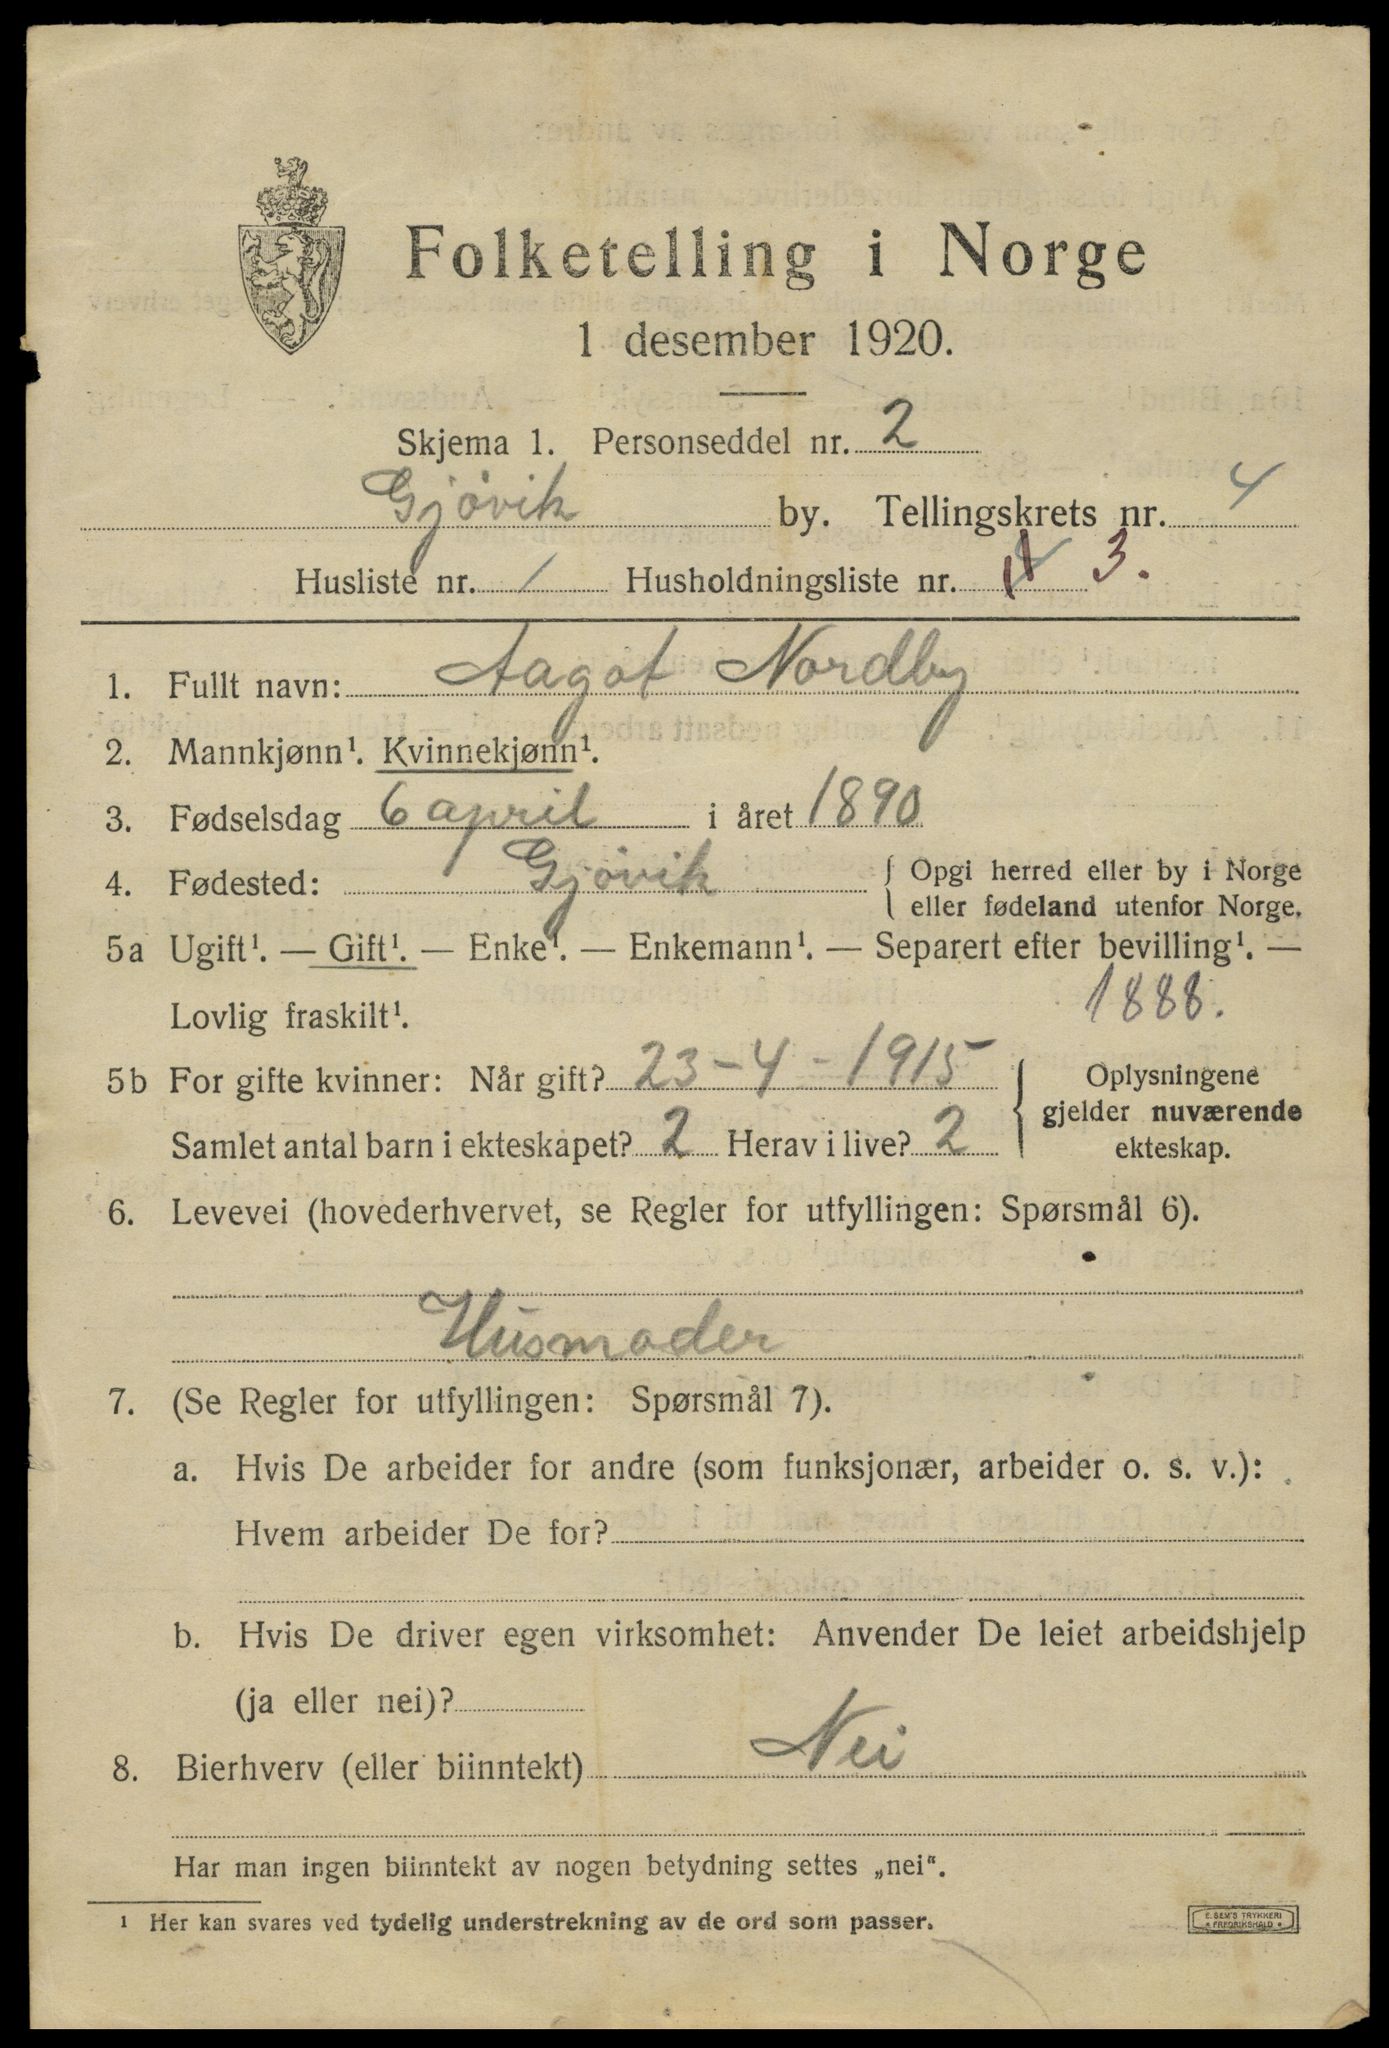 Folketelling i Norge
1 desember 1920.
Skjema 1. Personseddel nr. 2
Gjövik by. Tellingskrets nr. 4
Husliste nr. 1 Husholdningsliste nr. 3.
1. Fullt navn: Aagot Nordby
2. Mannkjønn¹. Kvinnekjønn¹.
3. Fødselsdag 6 april i året 1890
4. Fødested: Gjövik { Opgi herred eller by i Norge
eller fødeland utenfor Norge.
5a Ugift¹. — Gift¹. — Enke¹. — Enkemann¹. — Separert efter bevilling¹. —
Lovlig fraskilt¹. 1888.
5b For gifte kvinner: Når gift? 23-4-1915
Samlet antal barn i ekteskapet? 2 Herav i live? 2
{ Oplysningene
gjelder nuværende
ekteskap.
6. Levevei (hovederhvervet, se Regler for utfyllingen: Spørsmål 6).
Husmoder
7. (Se Regler for utfyllingen: Spørsmål 7).
a. Hvis De arbeider for andre (som funksjonær, arbeider o. s. v.):
Hvem arbeider De for?
b. Hvis De driver egen virksomhet: Anvender De leiet arbeidshjelp
(ja eller nei)?
8. Bierhverv (eller biinntekt) Nei
Har man ingen biinntekt av nogen betydning settes „nei".
¹ Her kan svares ved tydelig understrekning av de ord som passer.
E. SEM'S TRYKKERI
* FREDRIKSHALD *